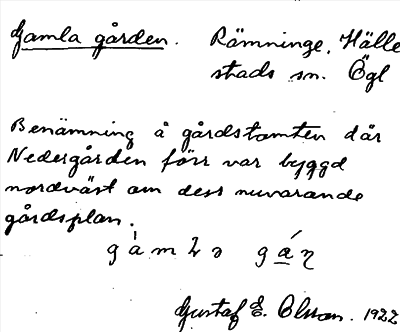 Gamla gården. Rämninge, Hälle
stads sn. Ögl
Benämning å gårdstomten där
Nedergården förr var byggd
nordväst om dess nuvarande
gårdsplan.
Gustaf E. Olsson. 1922